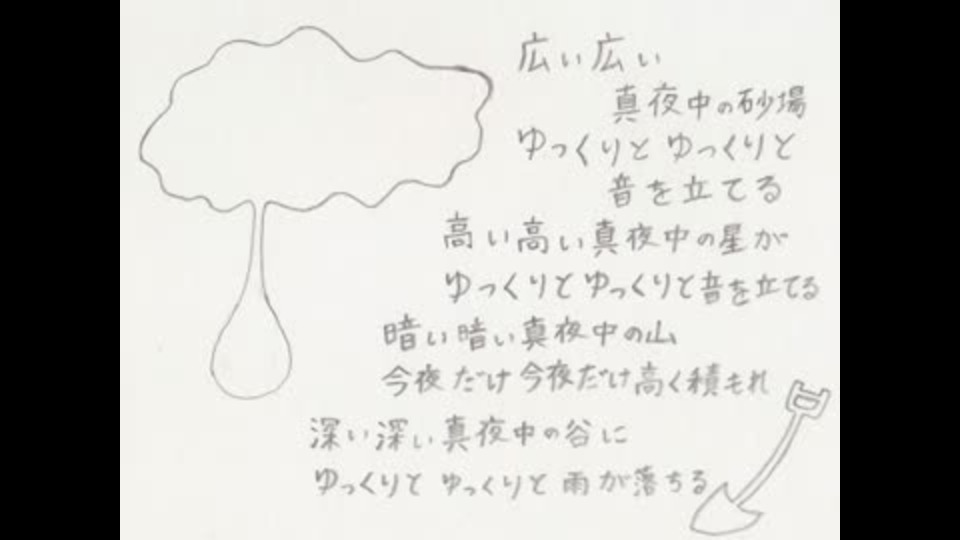 広い広い
真夜中の砂場
ゆっくりと ゆっくりと
音を立てる
高い高い真夜中の星が
ゆっくりと ゆっくりと音を立てる
暗い暗い真夜中の山
今夜だけ今夜だけ高く積もれ
深い深い真夜中の谷に
ゆっくりと ゆっくりと 雨が落ちる